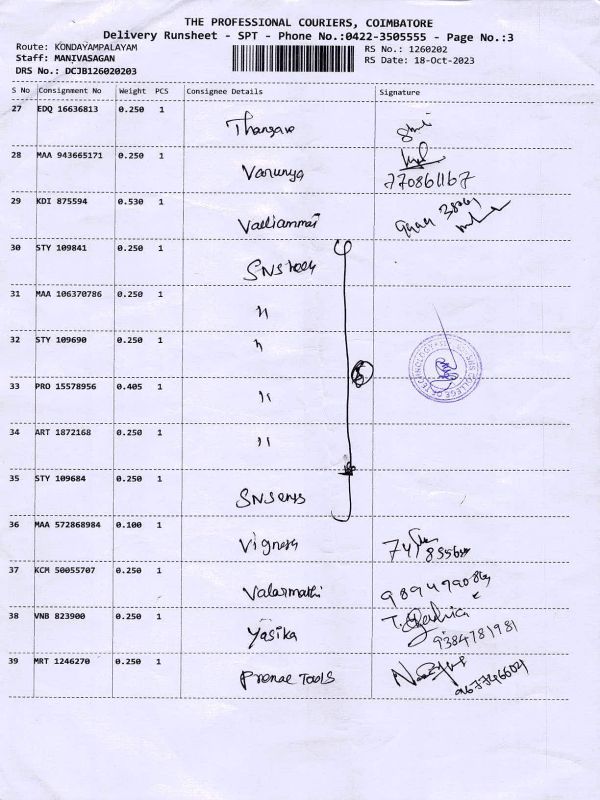 THE PROFESSIONAL COURIERS, COIMBATORE
Delivery Runsheet - SPT - Phone No.:0422-3505555 - Page No.:3
Route: KONDAYAMPALAYAM
RS No.: 1260202
Staff: MANIVASAGAN
RS Date: 18-Oct-2023
DRS No.: DCJB126020203
S No Consignment No Weight PCS Consignee Details Signature
27 EDQ 16636813 0.250 1
28 MAA 943665171 0.250 1 Varunya
7708611167
29 KDI 875594 0.530 1 Valliammai
30 STY 109841 0.250 1 SNS
31 MAA 106370786 0.250 1 〃
32 STY 109690 0.250 1 〃
33 PRO 15578956 0.405 1 〃
SNS COLLEGE OF TECHNOLOGY
34 ART 1872168 0.250 1 〃
35 STY 109684 0.250 1 SNS
36 MAA 572868984 0.100 1 Vignesh
37 KCM 50055707 0.250 1 Valarmathi
38 VNB 823900 0.250 1 Yasika
9384781981
39 MRT 1246270 0.250 1 Tools